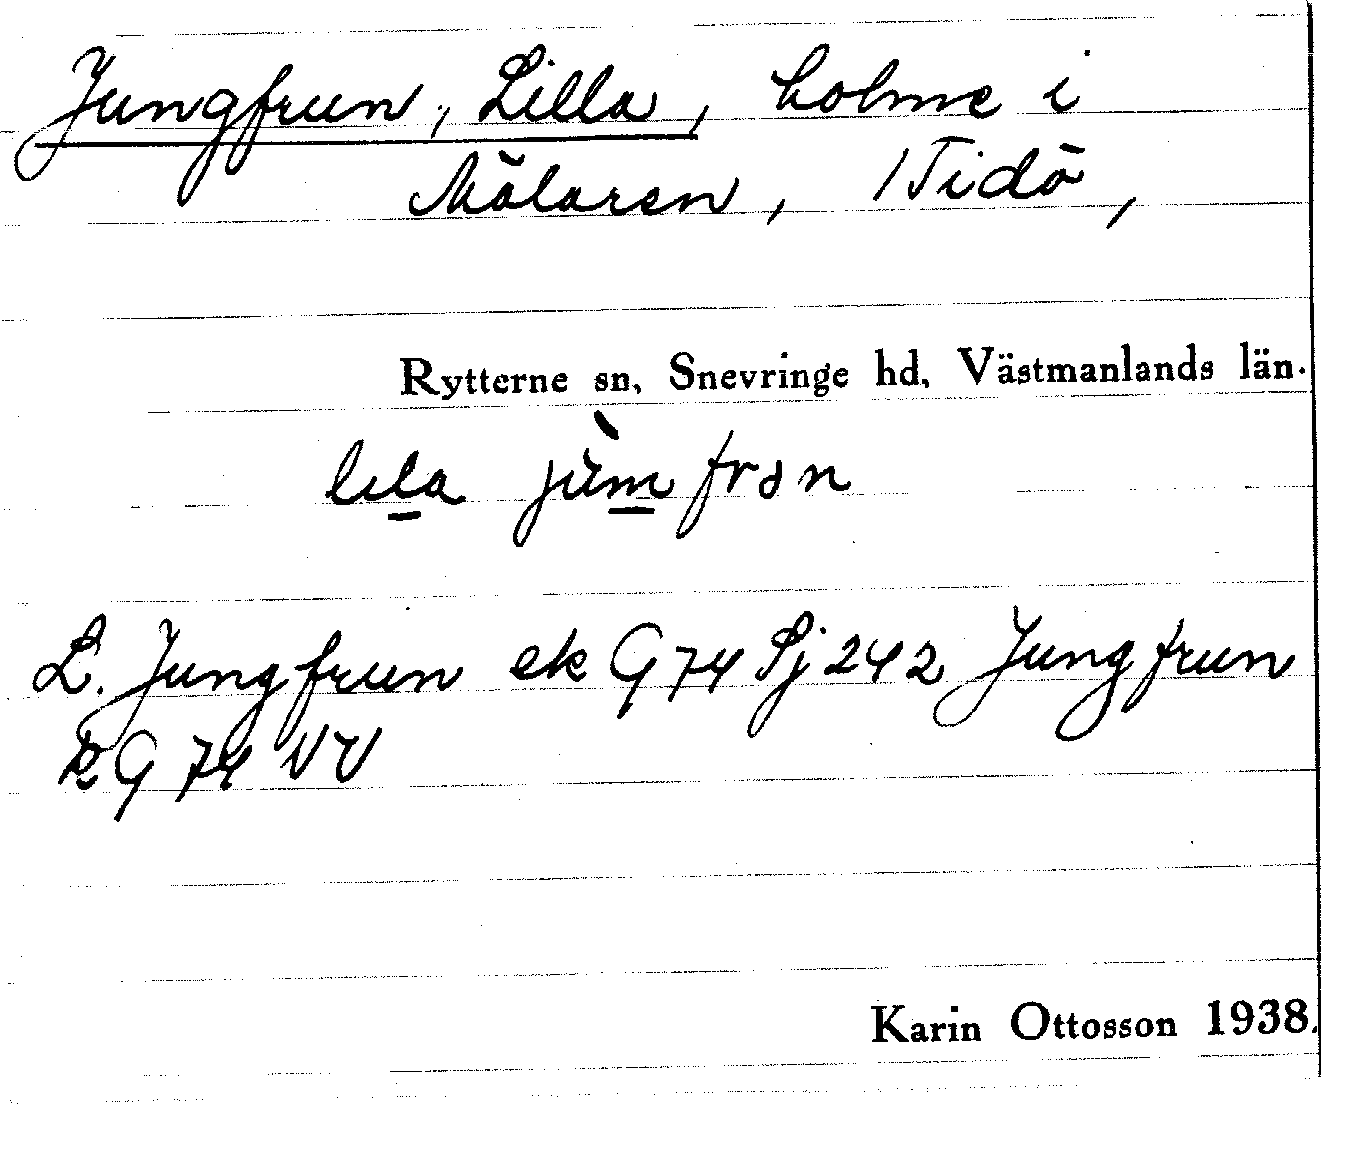 Jungfrun, Lilla, holme i
Mälaren, /Tidö,
Rytterne sn, Snevringe hd, Västmanlands län.
lila jùmfrən
L. Jungfrun ek G 74 Sj 242 Jungfrun
RG 74 VV
Karin Ottosson 1938.